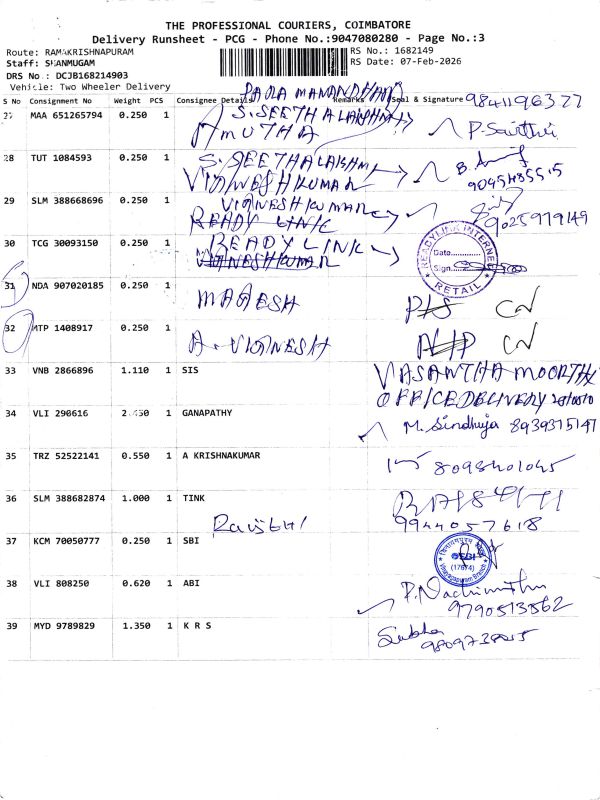 THE PROFESSIONAL COURIERS, COIMBATORE
Delivery Runsheet - PCG - Phone No.:9047080280 - Page No.:3
Route: RAMAKRISHNAPURAM
Staff: SHANMUGAM
DRS No.: DCJB168214903
Vehicle: Two Wheeler Delivery
RS No.: 1682149
RS Date: 07-Feb-2026
S No Consignment No Weight PCS Consignee Details Remarks Seal & Signature
9841196377
27 MAA 651265794 0.250 1 S. SEETHALAKSHMI
AMUTHA
28 TUT 1084593 0.250 1 S. SEETHALAKSHMI
VIGNESHKUMAR
29 SLM 388668696 0.250 1 VIGNESHKUMAR
READY LINK 9025979149
30 TCG 30093150 0.250 1 READY LINK
VIGNESHKUMAR
READYLINK INTERNET
Date
Sign
RETAIL
31 NDA 907020185 0.250 1 MAGESH
32 MTP 1408917 0.250 1 A. VIGNESH
33 VNB 2866896 1.110 1 SIS VASANTHA MOORTHY
OFFICE DELIVERY
34 VLI 290616 2.450 1 GANAPATHY M. Sindhuja 8939375147
35 TRZ 52522141 0.550 1 A KRISHNAKUMAR 8098401045
36 SLM 388682874 1.000 1 TINK
9944057618
37 KCM 70050777 0.250 1 SBI
SBI
(17674)
38 VLI 808250 0.620 1 ABI P. Nachimuthu
9790513562
39 MYD 9789829 1.350 1 K R S Subha